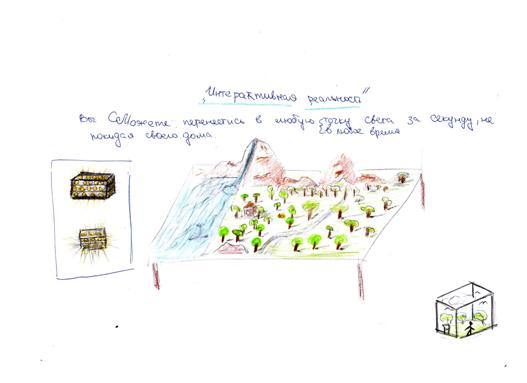 "Интерактивная реальность"
Вы Сможете перенестись в любую точку света за секунду, не
покидая своего дома.